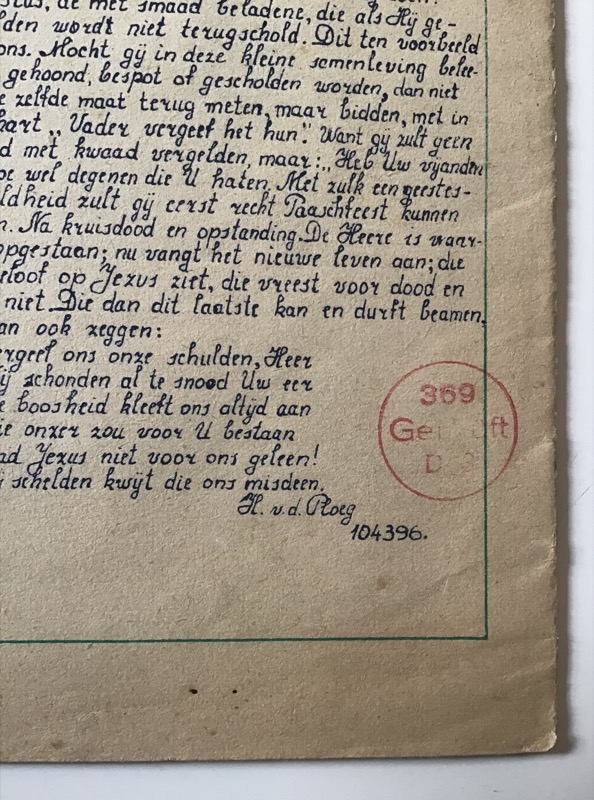 stus, de met smaad beladene, die als Hÿ ge-
den wordt niet terugschold. Dit ten voorbeeld
ons. Mocht gÿ in deze kleine samenleving belee-
gehoond, bespot of gescholden worden, dan niet
zelfde maat terug meten, maar bidden, met in
hart „Vader vergeef het hun". Want gÿ zult geen
d met kwaad vergelden, maar: „Heb Uw vÿanden
oe wel degenen die U haten. Met zulk een geestes-
ldheid zult gÿ eerst recht Paaschfeest kunnen
n. Na kruisdood en opstanding. De Heere is waar-
opgestaan; nu vangt het nieuwe leven aan; die
eloof op Jezus ziet, die vreest voor dood en
niet. Die dan dit laatste kan en durft beamen,
an ook zeggen:
ergeef ons onze schulden, Heer
ÿ schonden al te snood Uw eer
e boosheid kleeft ons altÿd aan
ie onzer zou voor U bestaan
ad Jezus niet voor ons geleen!
schelden kwÿt die ons misdeen.
H. v.d. Ploeg
104396.
369